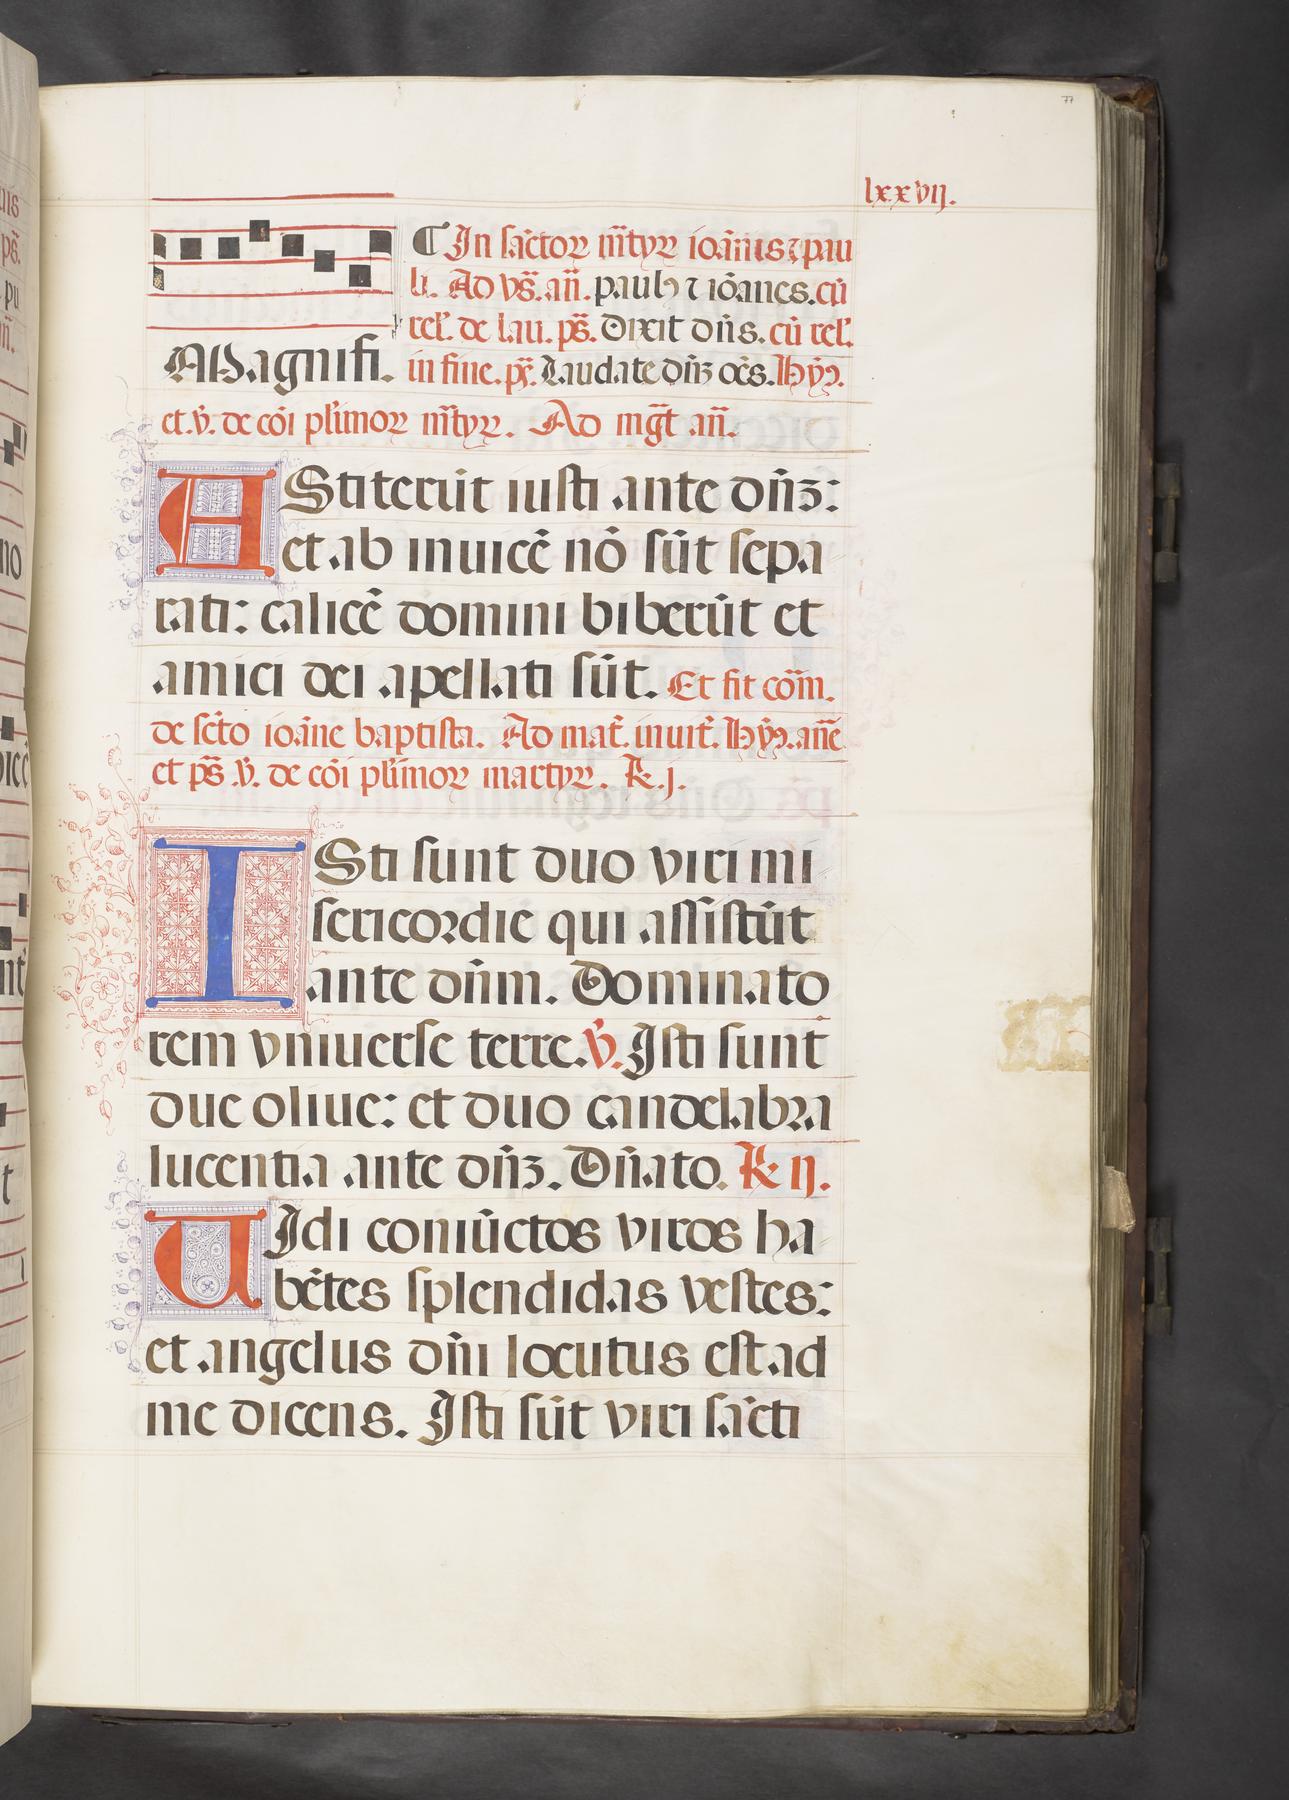 77
lxxvij.
¶ In sāctoꝝ m̄tyꝝ ioānis ⁊ pau
li. Ad vs̄. an̄. paulꝰ ⁊ iōanes. cū
rel'. de lau. ps̄. Dixit dn̄s. cū rel'.
Magnifi. in fine. ps̄. Laudate dn̄ꝫ oēs. Hym̄.
et. v̄. de cōi pl'imoꝝ m̄tyꝝ. Ad mḡt an̄.
AStiterūt iusti ante dn̄ꝫ:
et ab inuicē nō sūt sepa
rati: calicē domini biberūt et
amici dei apellati sūt. Et fit cōm.
de sc̄to ioāne baptista. Ad mat̄. inuit̄. Hym̄. an̄e
et ps̄ v̄. de cōi pl'imoꝝ martyꝝ. R. j.
ISti sunt duo viri mi
sericordie qui assistūt
ante dn̄m. Dominato
rem vniuerse terre. v̄. Isti sunt
due oliue: et duo candelabra
lucentia ante dn̄ꝫ. Dn̄ato. R ij.
UIdi coniūctos viros ha
bētes splendidas vestes:
et angelus dn̄i locutus est ad
me dicens. Isti sūt viri sācti